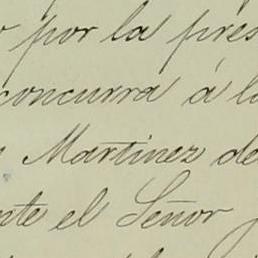 por la pres
concurra á la
Martinez de
nte el Señor